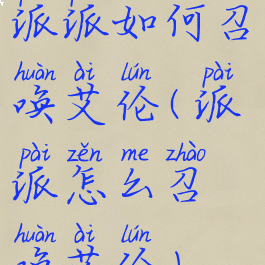 派派如何召
huàn ài lún pài
唤艾伦(派
pài zěn me zhào
派怎么召
huàn ài lún
唤艾伦)